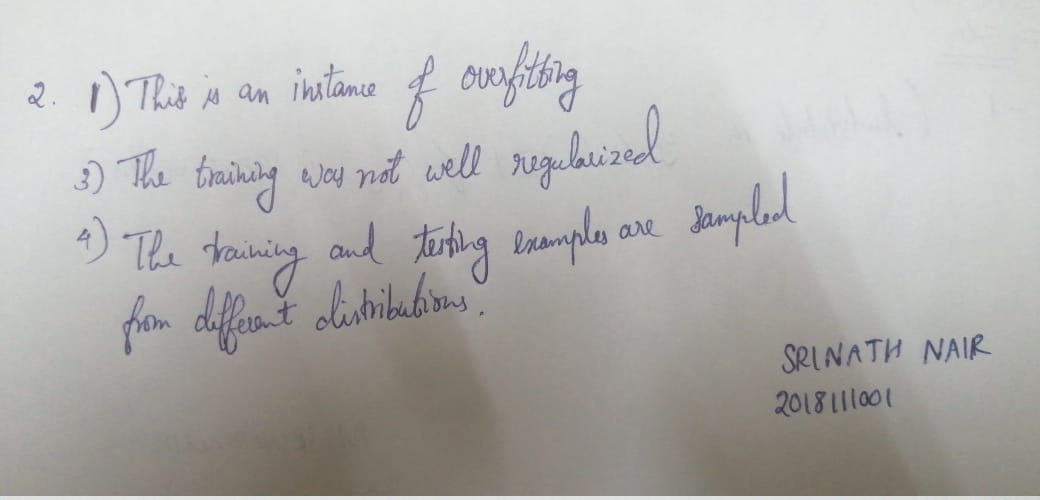 2. 1) This is an instance of overfitting
3) The training was not well regularized
4) The training and testing examples are sampled
from different distributions.
SRINATH NAIR
2018111001